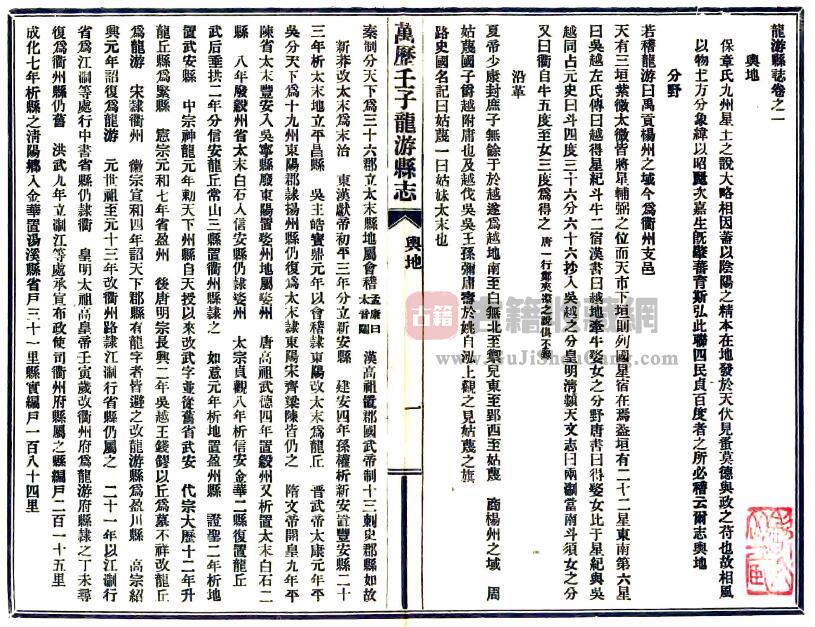 龍游縣誌卷之一
輿地
保章氏九州星土之說大略相因蓋以陰陽之精本在地發於天伏見蚤莫德與政之符也故相風
以物土方分象緯以昭躔次嘉生旣肇蕃育斯弘此聯四民貞百度者之所必稽云爾志輿地
分野
若稽龍游曰禹貢楊州之域今爲衢州支邑
天有三垣紫微太微皆將帛輔弼之位而天市下垣則列國星宿在焉益垣有二十二星東南第六星
曰吳越左氏傳曰越得星紀斗牛二宿漢書曰越地牽牛婺女之分野唐書曰得婺女比于星紀與吳
越同占元史曰斗四度三十六分六十六抄入吳越之分皇明淸類天文志曰兩淛當南斗須女之分
又曰衢自牛五度至女三度爲得之 唐一行鄭夾漈之說俱不錄
沿革
夏帝少康封庶子無餘于於越遂爲越地南至句無北至禦兒東至鄞西至姑蔑 商楊州之域 周
姑蔑國子爵越附庸也及越伐吳吳王孫彌庸壽於姚自泓上觀之見姑蔑之旗
路史國名記曰姑蔑一曰姑妹太末也
萬歷壬子龍游縣志
輿地
一
秦制分天下爲三十六郡立太末縣地屬會稽 孟康曰太音闥 漢高祖置郡國武帝制十三刺史郡縣如故
新莽改太末爲末治 東漢獻帝初平三年分立新安縣 建安四年孫權析新安置豐安縣二十
三年析太末地立平昌縣 吳主皓寶鼎元年以會稽隸東陽改太末爲龍丘 晋武帝太康元年平
吳分天下爲十九州東陽郡隸揚州縣仍復爲太末隸東陽宋齊梁陳皆仍之 隋文帝開皇九年平
陳省太末豐安入吳寧縣廢東陽置婺州地屬婺州 唐高祖武德四年置穀州又析置太末白石二
縣 八年廢穀州省太末白石入信安縣仍隸婺州 太宗貞觀八年析信安金華二縣復置龍丘
武后垂拱二年分信安龍丘常山三縣置衢州縣隸之 如意元年析地置盈州縣 證聖二年析地
置武安縣 中宗神龍元年勅天下州縣自天授以來改武字並從舊省武安 代宗大歷十二年升
龍丘縣爲緊縣 憲宗元和七年省盈州 後唐明宗長興二年吳越王錢鏐以丘爲墓不祥改龍丘
爲龍游 宋隸衢州 徽宗宣和四年詔天下郡縣有龍字者皆避之改龍游縣爲盈川縣 高宗紹
興元年詔復爲龍游 元世祖至元十三年改衢州路隸江淛行省縣仍屬之 二十一年以江淛行
省爲江淛等處行中書省縣仍隸衢 皇明太祖高皇帝壬寅歲改衢州府爲龍游府縣隸之丁未尋
復爲衢州縣仍舊 洪武九年立淛江等處承宣布政使司衢州府縣屬之縣編戶二百一十五里
成化七年析縣之清陽鄉入金華置湯溪縣省戶三十一里縣實編戶一百八十四里
古籍
古籍收藏網
www.GuJiShouCang.com